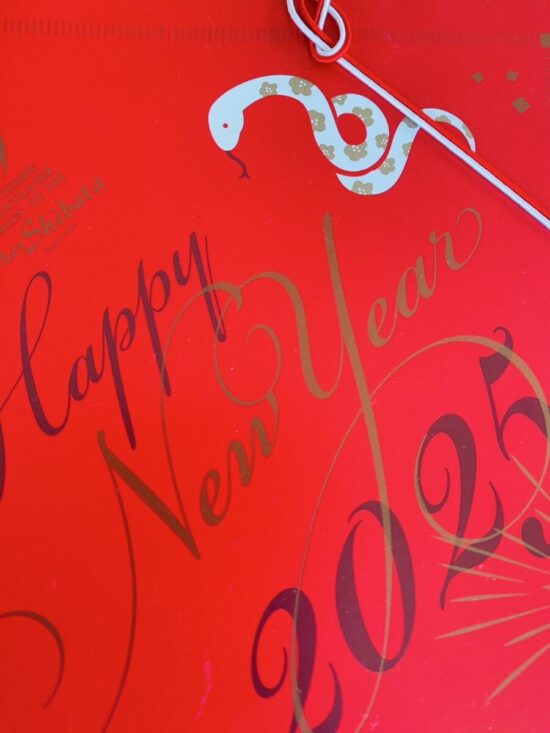 Shibata
Happy
New Year
2025